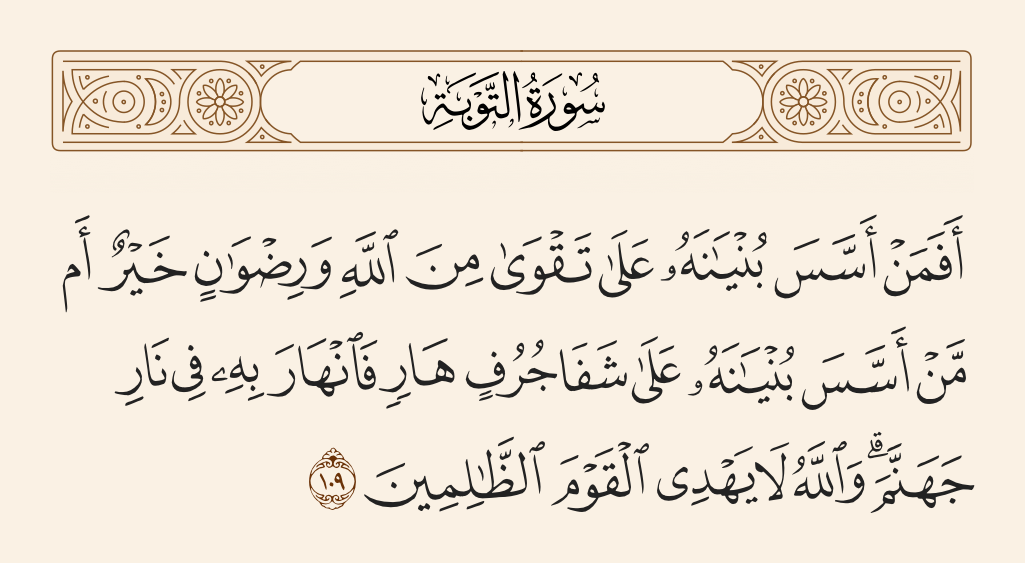 سُورَةُ التَّوۡبَةِ
أَفَمَنۡ أَسَّسَ بُنۡيَٰنَهُۥ عَلَىٰ تَقۡوَىٰ مِنَ ٱللَّهِ وَرِضۡوَٰنٍ خَيۡرٌ أَم
مَّنۡ أَسَّسَ بُنۡيَٰنَهُۥ عَلَىٰ شَفَا جُرُفٍ هَارٖ فَٱنۡهَارَ بِهِۦ فِي نَارِ
جَهَنَّمَۗ وَٱللَّهُ لَا يَهۡدِي ٱلۡقَوۡمَ ٱلظَّٰلِمِينَ ١٠٩